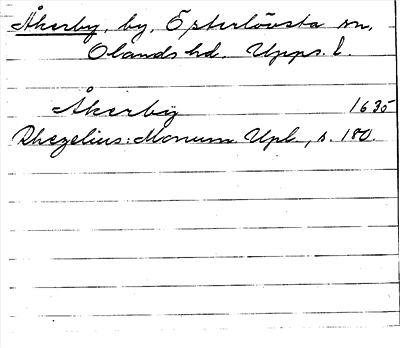 Åkerby, by, Österlövsta sn,
Olands hd. Upps. l.
Åkerby 1635
Rhezelius: Monum. Upl., s. 180.